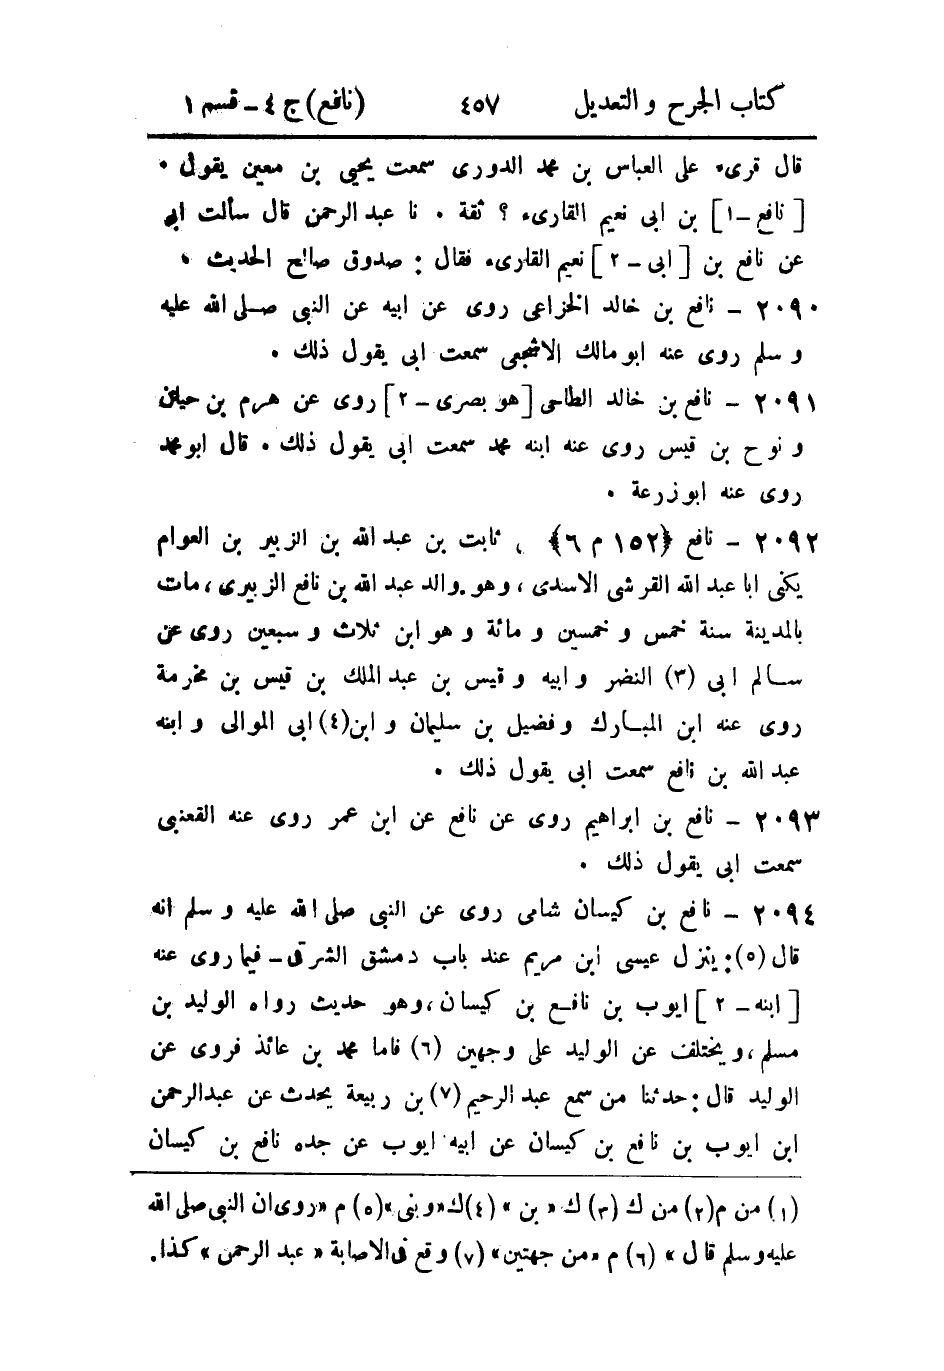 كتاب الجرح و التعديل ٤٥٧ (نافع) ج ٤ – قسم ١
قال قرىء على العباس بن محمد الدورى سمعت يحيى بن معين يقول .
[ نافع – ١ ] بن ابى نعيم القارىء ؟ ثقة . نا عبد الرحمن قال سألت ابى
عن نافع بن [ ابى – ٢ ] نعيم القارىء فقال : صدوق صالح الحديث .
٢٠٩٠ – نافع بن خالد الخزاعى روى عن ابيه عن النبى صلى الله عليه
و سلم روى عنه ابو مالك الاشجعى سمعت ابى يقول ذلك .
٢٠٩١ – نافع بن خالد الطاحى [ هو بصرى – ٢ ] روى عن هرم بن حيان
و نوح بن قيس روى عنه ابنه محمد سمعت ابى يقول ذلك . قال ابو محمد
روى عنه ابو زرعة .
٢٠٩٢ – نافع ﴿١٥٢ م ٦﴾ بن ثابت بن عبد الله بن الزبير بن العوام
يكنى ابا عبد الله القرشى الاسدى ، وهو والد عبد الله بن نافع الزبيرى ، مات
بالمدينة سنة خمس و خمسين و مائة و هو ابن ثلاث و سبعين روى عن
سالم ابى (٣) النضر و ابيه و قيس بن عبد الملك بن قيس بن مخرمة
روى عنه ابن المبارك و فضيل بن سليمان و ابن (٤) ابى الموالى و ابنه
عبد الله بن نافع سمعت ابى يقول ذلك .
٢٠٩٣ – نافع بن ابراهيم روى عن نافع عن ابن عمر روى عنه القعنبى
سمعت ابى يقول ذلك .
٢٠٩٤ – نافع بن كيسان شامى روى عن النبى صلى الله عليه و سلم انه
قال (٥) : ينزل عيسى ابن مريم عند باب دمشق الشرقى – فيما روى عنه
[ ابنه – ٢ ] ايوب بن نافع بن كيسان ، وهو حديث رواه الوليد بن
مسلم ، و يختلف عن الوليد على وجهين (٦) فاما محمد بن عائذ فروى عن
الوليد قال : حدثنا من سمع عبد الرحيم (٧) بن ربيعة يحدث عن عبد الرحمن
ابن ايوب بن نافع بن كيسان عن ابيه ايوب عن جده نافع بن كيسان
(١) من م (٢) من ك (٣) ك « بن » (٤) ك « و بنى » (٥) م « روى ان النبى صلى الله
عليه و سلم قال » (٦) م « من جهتين » (٧) وقع فى الاصابة « عبد الرحمن » كذا .